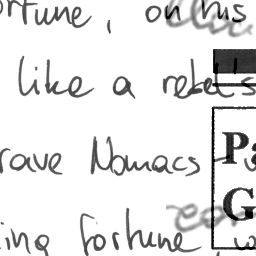 ortune, on his
like a rebel's
rave Nomacs - Pa
G
ing fortune, w